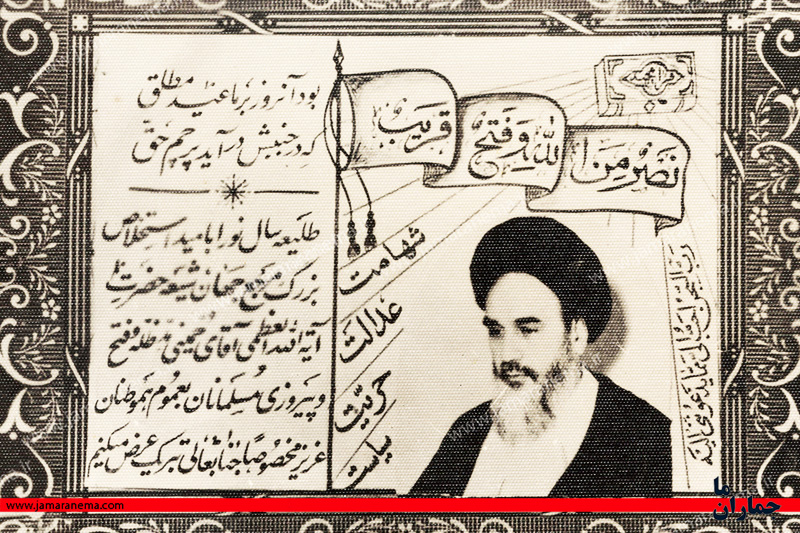 بود آنروز بر ما عید مطلق
که در جنبش درآید پرچم حق
طلیعه سال نو را بامید استخلاص
بزرگ مرجع جهان شیعه حضرت
آیة الله العظمی آقای خمینی مد ظله و فتح
و پیروزی مسلمانان بعموم هموطنان
عزیز مخصوصا جنابعالی تبریک عرض میکنیم
نصر من الله و فتح قریب
قرآن مجید
شهامت
عدالت
حریت
سیاست
رب السجن احب الی مما یدعوننی الیه
www.jamaranema.com
جماران ما